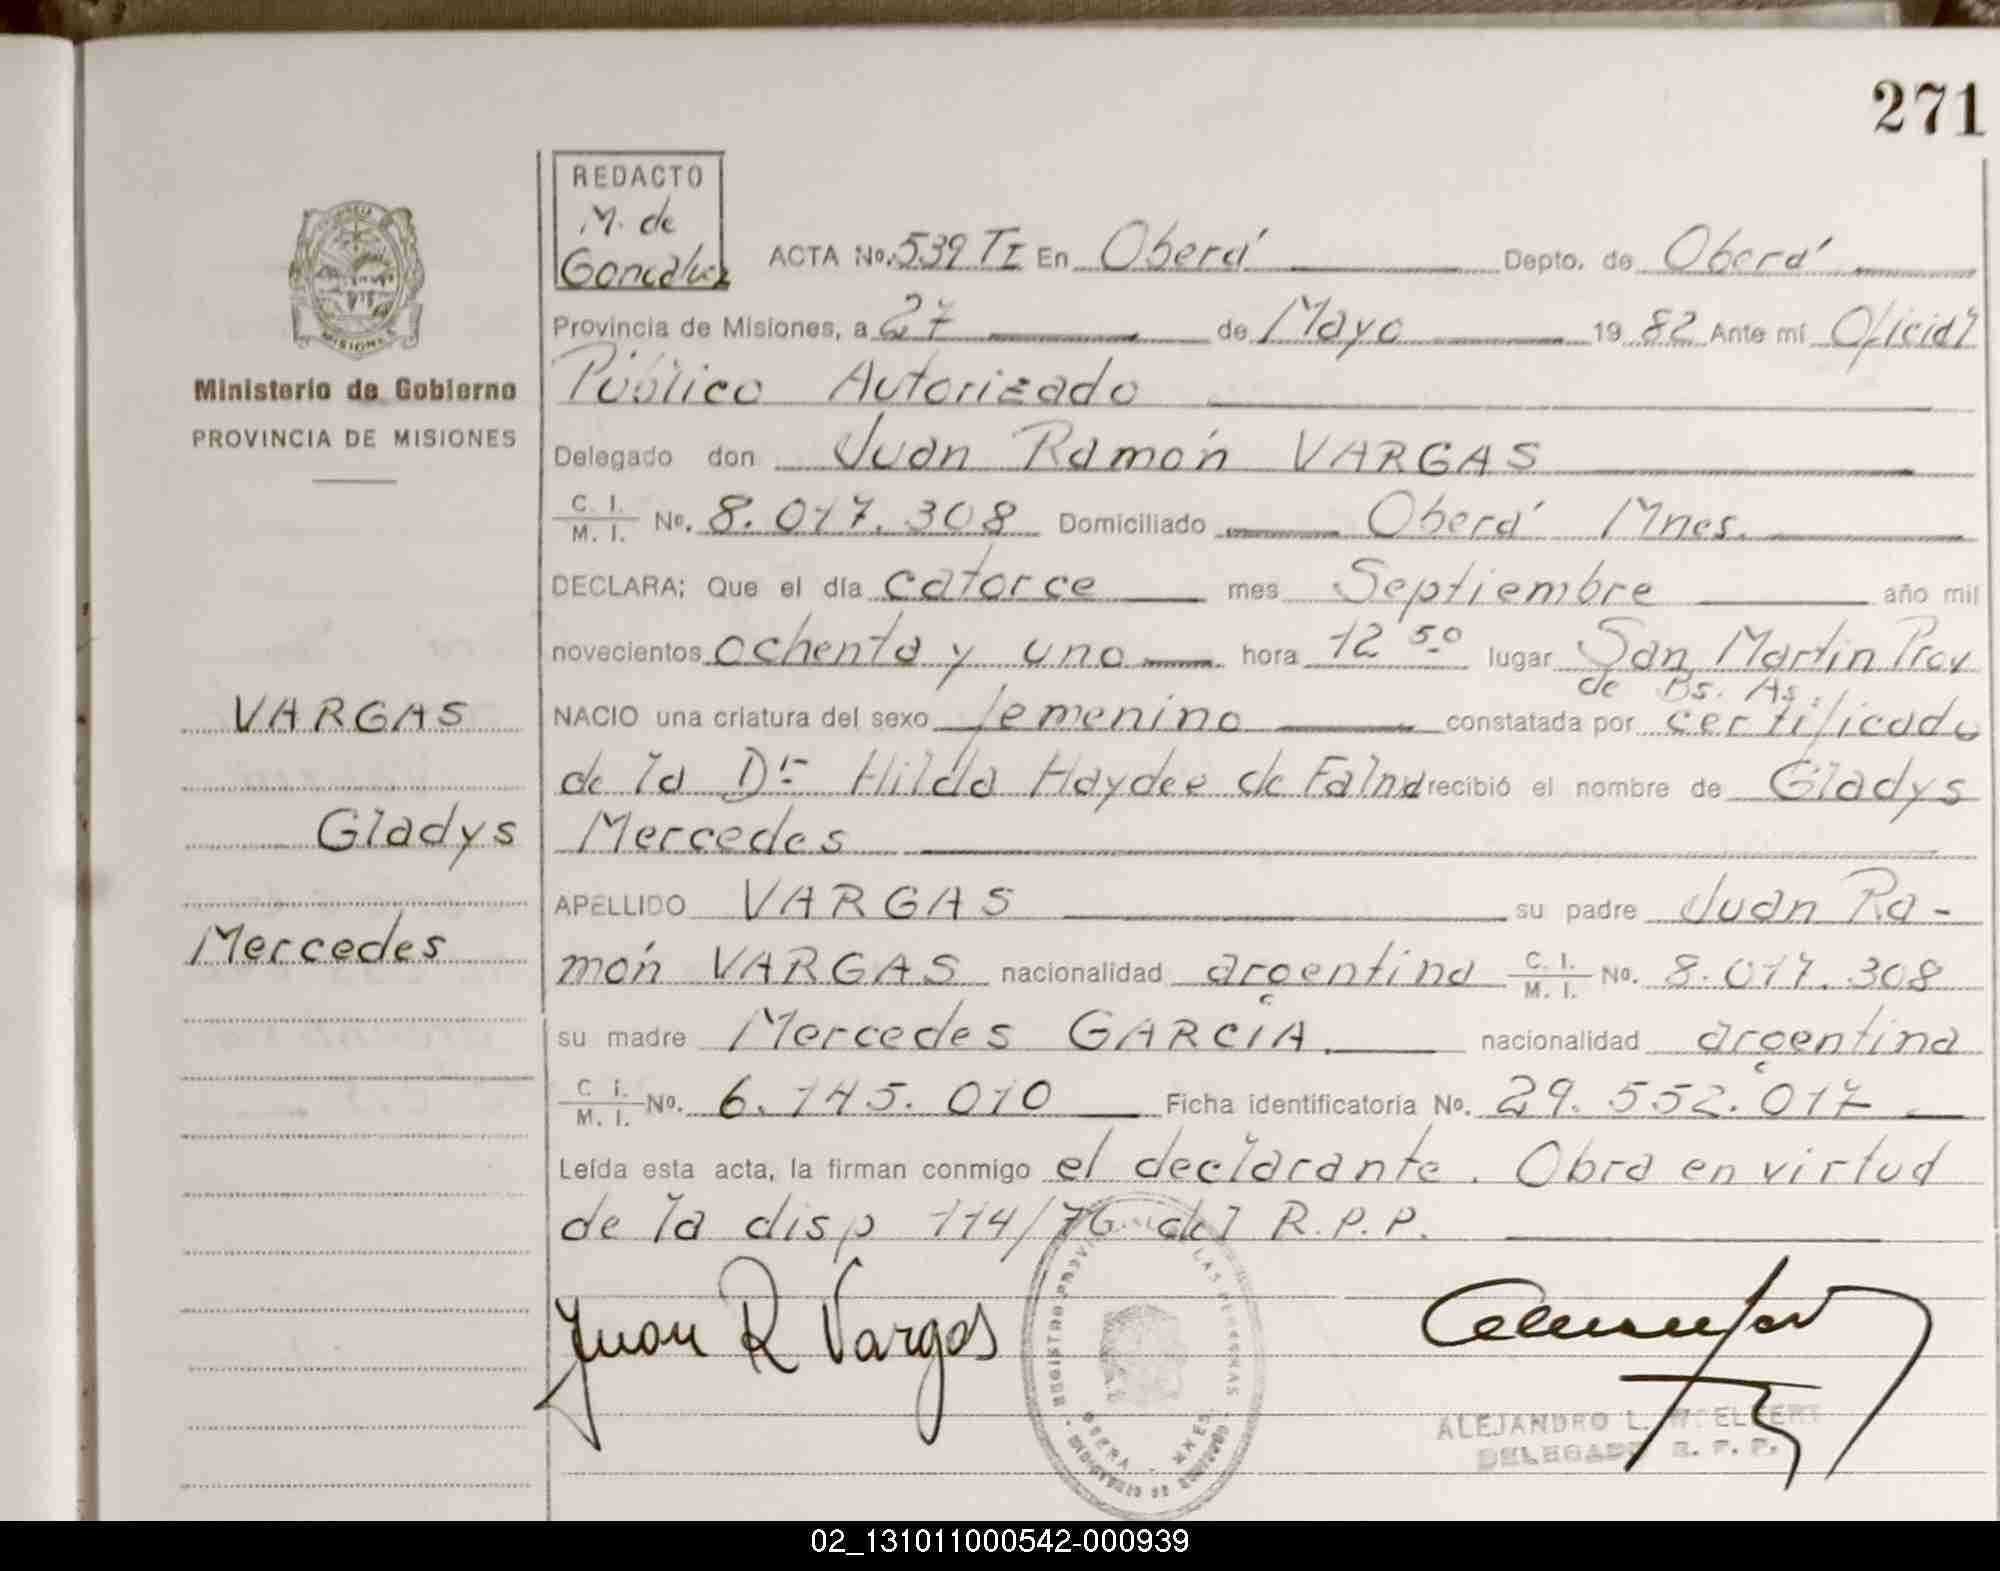 271
REDACTO
M. de
Goncalvez
ACTA No. 539 TI En Oberá Depto. de Oberá
Provincia de Misiones, a 27 de Mayo 1982 Ante mí Oficial
Público Autorizado
Delegado don Juan Ramón VARGAS
C. I. / M. I. No. 8.017.308 Domiciliado Oberá Mnes.
DECLARA; Que el día catorce mes Septiembre año mil
novecientos ochenta y uno hora 12 50 lugar San Martin Prov
de Bs. As.
NACIO una criatura del sexo femenino constatada por certificado
de la Dra Hilda Haydee de recibió el nombre de Gladys
Mercedes
APELLIDO VARGAS su padre Juan Ra-
món VARGAS nacionalidad argentina C. I. / M. I. No. 8.017.308
su madre Mercedes GARCÍA. nacionalidad argentina
C. I. / M. I. No. 6.145.010 Ficha identificatoria No. 29.552.017
Leída esta acta, la firman conmigo el declarante. Obra en virtud
de la disp 114/76 del R.P.P.
Juan R Vargas
REGISTRO PROVINCIAL DE LAS PERSONAS
OBERA - MNES.
ALEJANDRO L.
DELEGADO R. P. P.
PROVINCIA
MISIONES
Ministerio de Gobierno
PROVINCIA DE MISIONES
VARGAS
Gladys
Mercedes
02_131011000542-000939